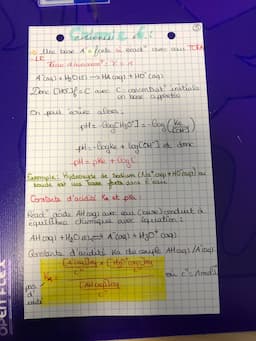 Chimie 6:
Une base A⁻ forte si react° avec eau TOTA
LE
Taux d'avancem^t: τ = 1
A⁻(aq) + H₂O(l) → HA(aq) + HO⁻(aq)
Donc [HO⁻]f = C avec C: concentrat° initiale
en base apportée
On peut écrire alors:
pH = -log[H₃O⁺] = -log(Ke/[OH⁻])
pH = -log Ke + log[OH⁻] et donc
pH = pKe + log C
Exemple: Hydroxyde de Sodium (Na⁺(aq) + HO⁻(aq)) ou
soude est une base forte dans l'eau
Constante d'acidité Ka et pKa:
React° acide AH(aq) avec eau (base) conduit à
équilibre chimique avec équation:
AH(aq) + H₂O(l) ⇌ A⁻(aq) + H₃O⁺(aq)
Constante d'acidité Ka du couple AH(aq)/A⁻(aq)
pas
d'
unité
Ka =
[A⁻(aq)]éq × [H₃O⁺(aq)]éq
[AH(aq)]éq
c°